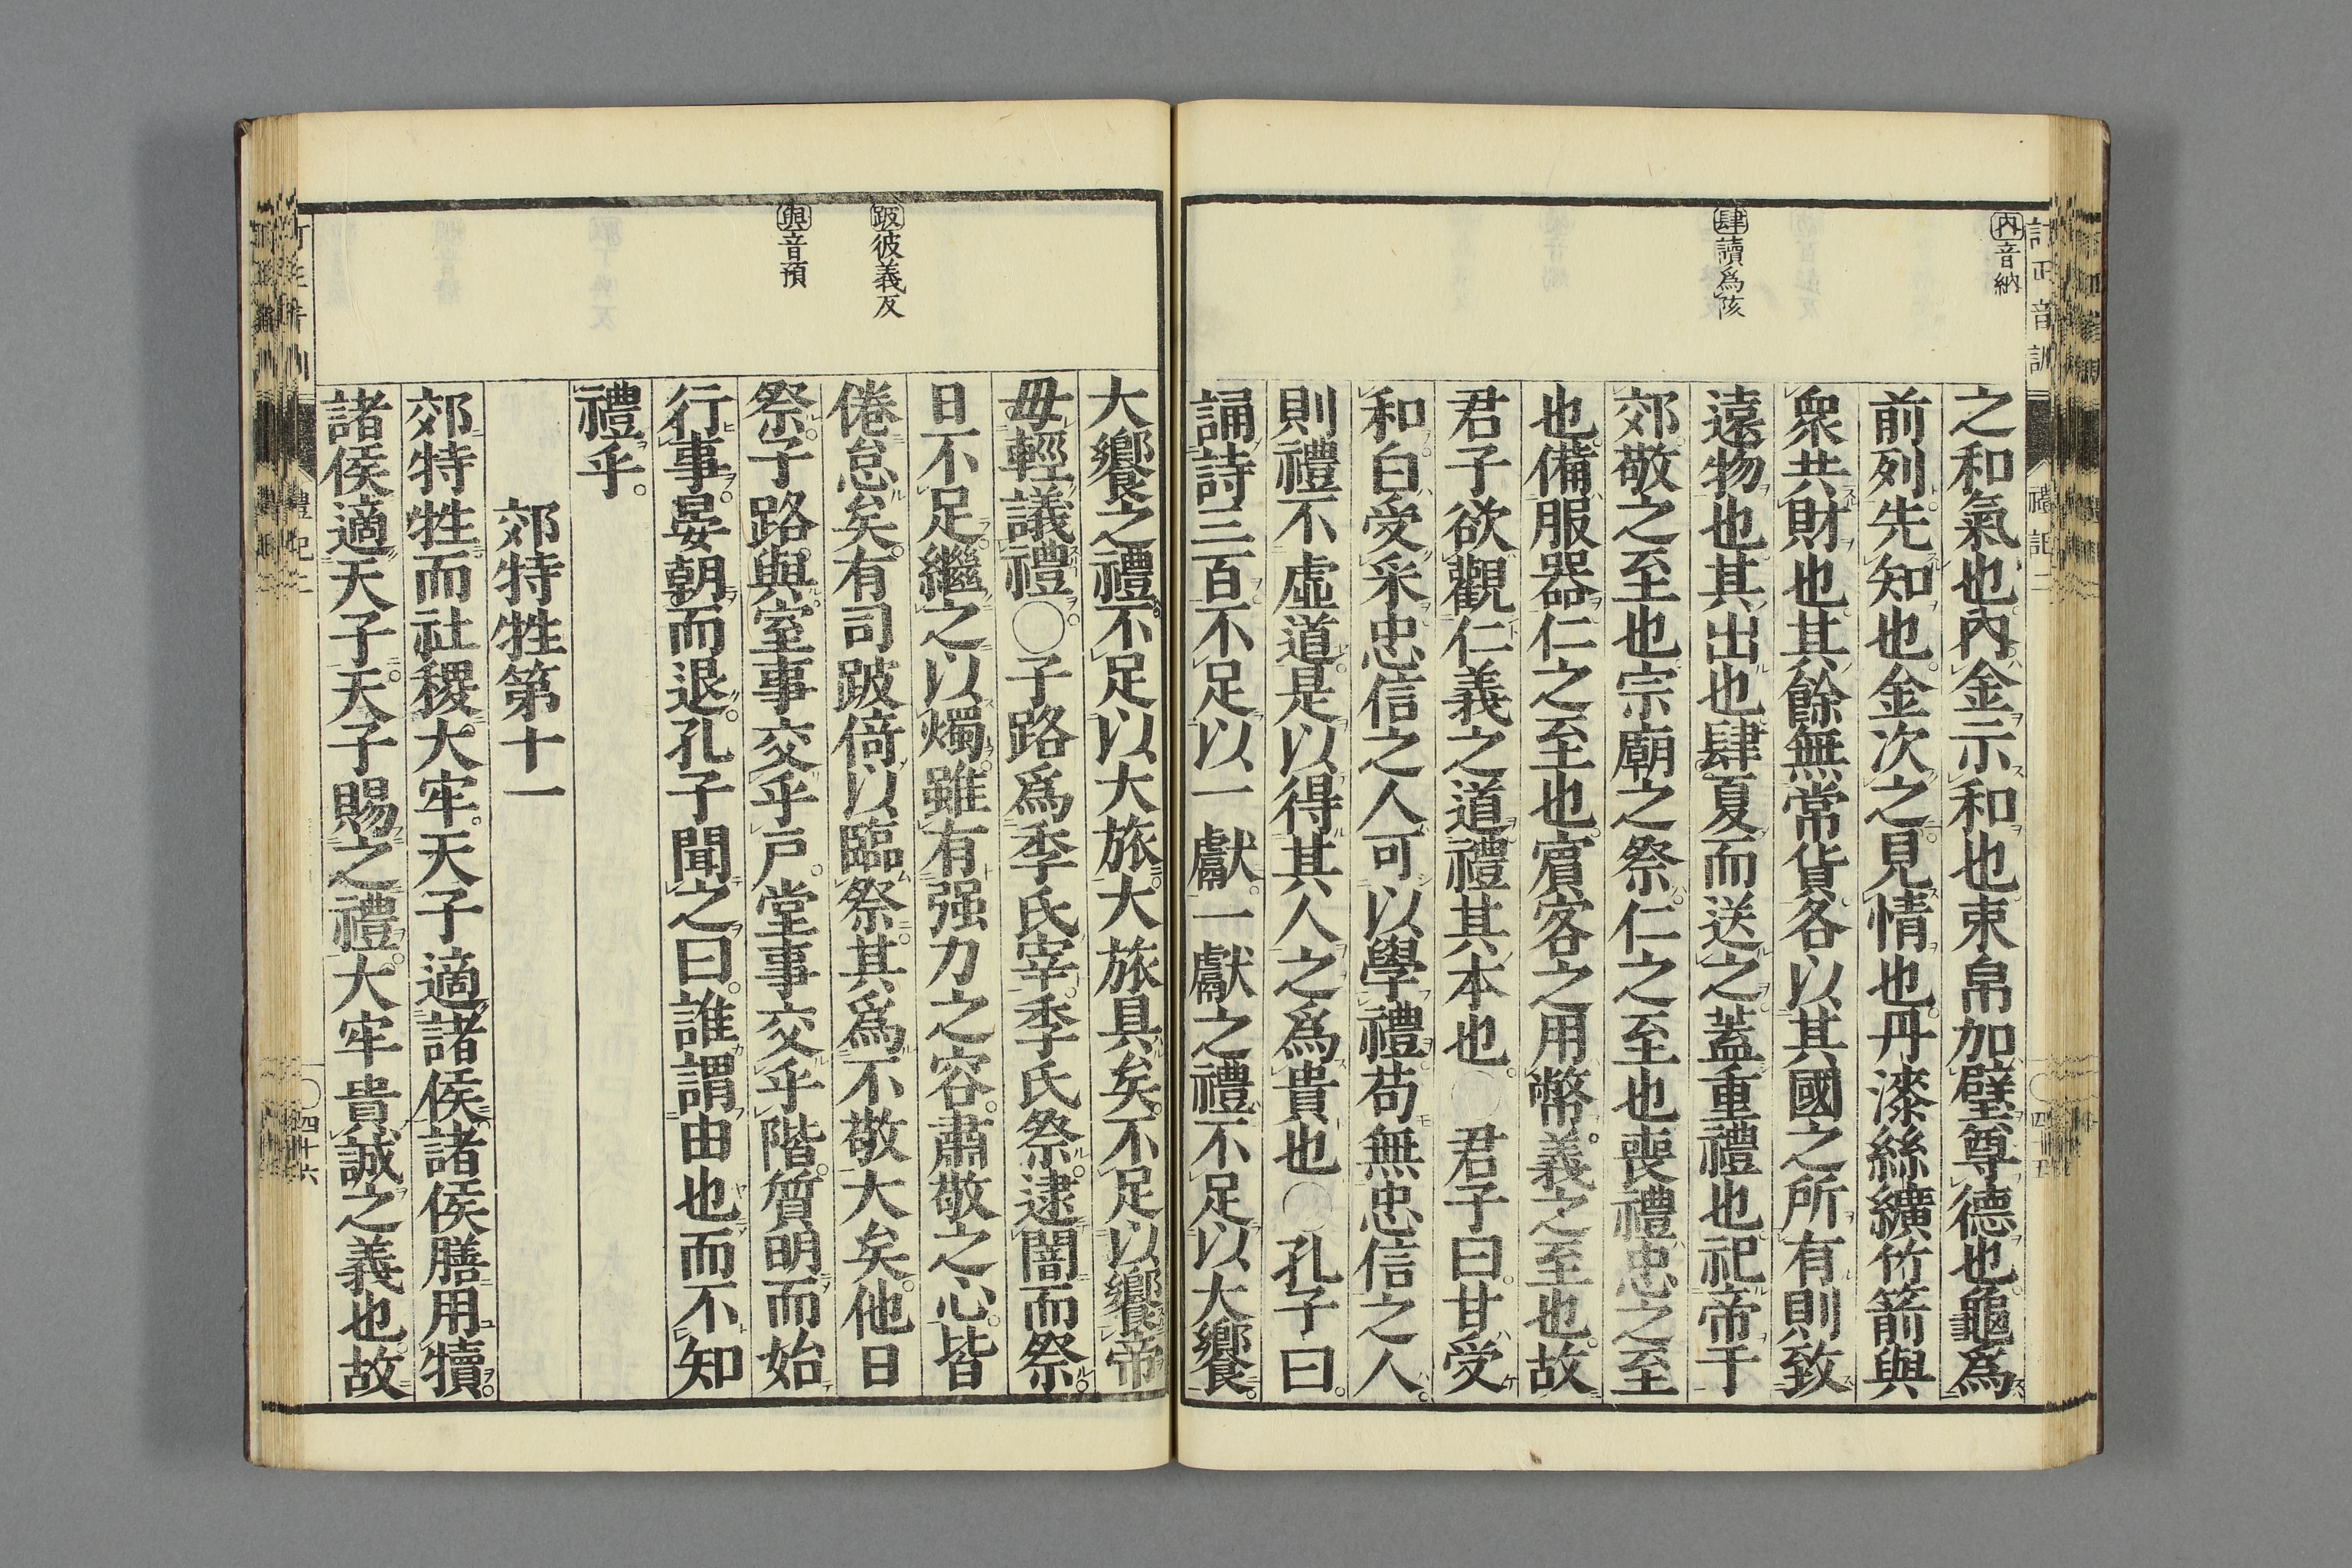 訂正音訓
禮記二
四十五
內音納
肆讀爲陔
之和氣也內金示和也束帛加璧尊德也龜爲
前列先知也金次之見情也丹漆絲纊竹箭與
衆共財也其餘無常貨各以其國之所有則致
遠物也其出也肆夏而送之蓋重禮也祀帝于
郊敬之至也宗廟之祭仁之至也喪禮忠之至
也備服器仁之至也賓客之用幣義之至也故
君子欲觀仁義之道禮其本也○君子曰甘受
和白受采忠信之人可以學禮苟無忠信之人
則禮不虛道是以得其人之爲貴也○孔子曰
誦詩三百不足以一獻一獻之禮不足以大饗
跛彼義反
與音預
大饗之禮不足以大旅大旅具矣不足以饗帝
毋輕議禮○子路爲季氏宰季氏祭逮闇而祭
日不足繼之以燭雖有强力之容肅敬之心皆
倦怠矣有司跛倚以臨祭其爲不敬大矣他日
祭子路與室事交乎戶堂事交乎階質明而始
行事晏朝而退孔子聞之曰誰謂由也而不知
禮乎
郊特牲第十一
郊特牲而社稷大牢天子適諸侯諸侯膳用犢
諸侯適天子天子賜之禮大牢貴誠之義也故
禮記二
四十六